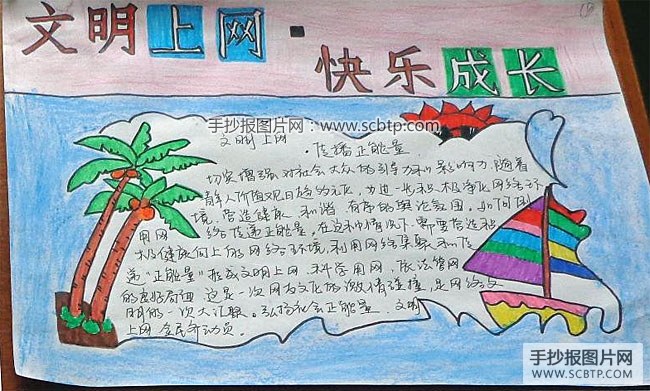 文明上网·
快乐成长
手抄报图片网:www.scbtp.com
文明上网
·传播正能量
切实增强对社会大众的引导力和影响力,随着
青年人价值观日趋多元化,力进一步积极净化网络环
境,营造健康、和谐、有序的舆论氛围。如何利
用网络传递正能量。在这种情况下,需要营造积
极健康向上的网络环境,利用网络集聚和传
递“正能量”形成文明上网、科学用网、依法管网
的良好局面 这是一次网络文化的激情碰撞,是网络文
明的一次大汇聚。弘扬社会正能量,文明
上网 全民齐动员。
手抄报图片网
WWW.SCBTP.COM